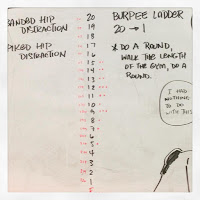 BANDED HIP
DISTRACTION
PIKED HIP
DISTRACTION
20
19
18
17
16
15
14
13
12
11
10
9
8
7
6
5
4
3
2
1
BURPEE LADDER
20 → 1
* DO A ROUND,
WALK THE LENGTH
OF THE GYM, DO A
ROUND.
I HAD
NOTHING
TO DO
WITH THIS